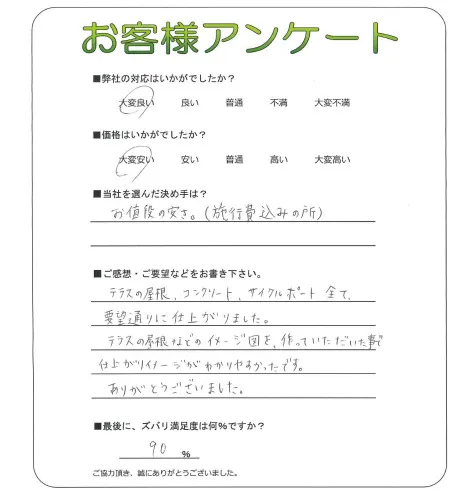 お客様アンケート
■弊社の対応はいかがでしたか？
大変良い 良い 普通 不満 大変不満
■価格はいかがでしたか？
大変安い 安い 普通 高い 大変高い
■当社を選んだ決め手は？
お値段の安さ。(施行費込みの所)
■ご感想・ご要望などをお書き下さい。
テラスの屋根、コンクリート、サイクルポート 全て、
要望通りに仕上がりました。
テラスの屋根などのイメージ図を、作っていただいた事で
仕上がりイメージがわかりやすかったです。
ありがとうございました。
■最後に、ズバリ満足度は何%ですか？
90 %
ご協力頂き、誠にありがとうございました。